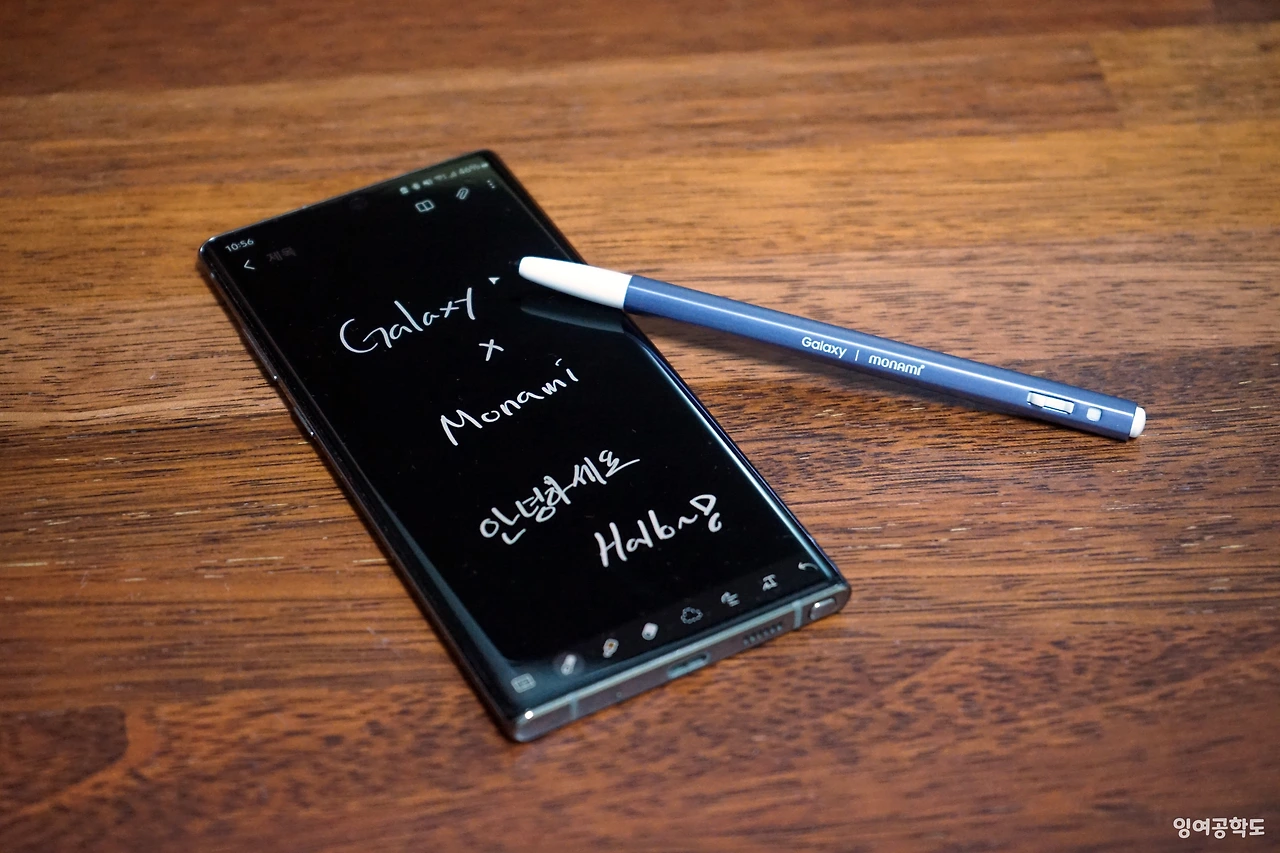 10:56
제목
Galaxy
x
Monami
안녕하세요
Galaxy | monami
잉여공학도